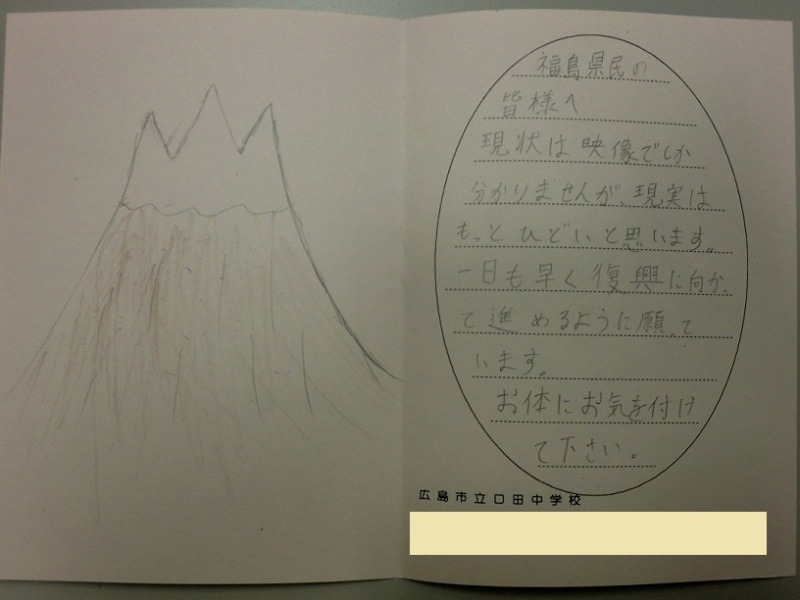 福島県民の
皆様へ
現状は映像でしか
分かりませんが、現実は
もっとひどいと思います。
一日も早く復興に向かっ
て進めるように願って
います。
お体にお気を付け
て下さい。
広島市立口田中学校